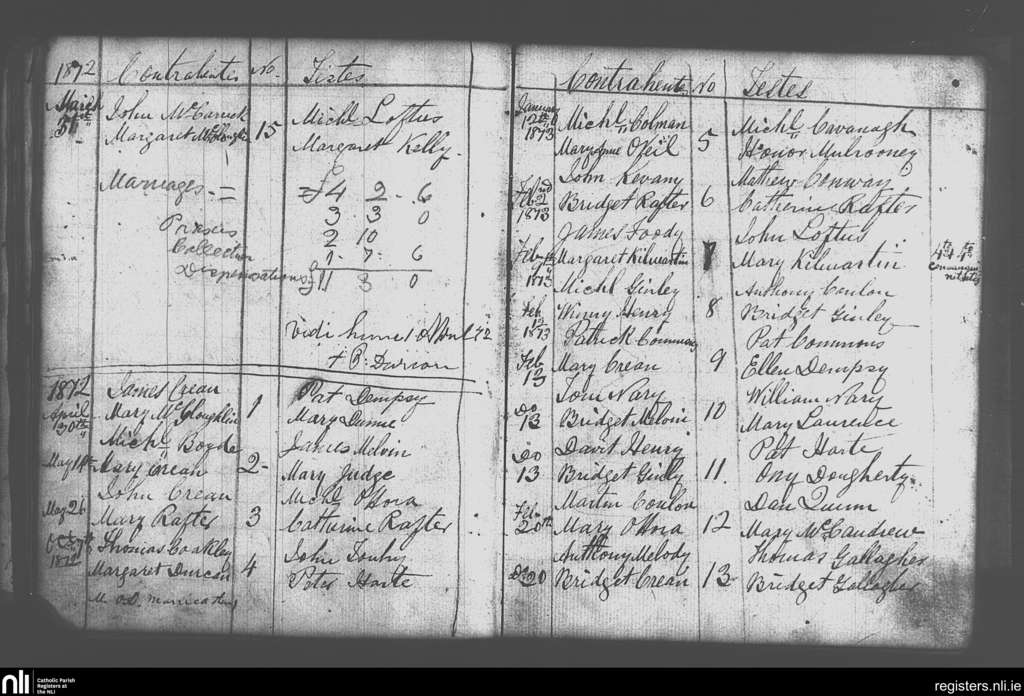 1872 Contrahentes No. Testes
March
31st
John McCarrick
Margaret McLoughlin 15
Michl Loftus
Margaret Kelly.
Marriages - =
Proxies
Collection
Dispensations
4 2 - 6
3 3 0
2 10
1 - 7 - 6
£11 3 0
Vidi hunc
+ P. Durcan
1872
April
30th
James Crean
Mary McLoughlin 1
Pat Dempsy
Mary Dunne
May 14th
Michl Boyde
Mary Crean 2 -
James Melvin
Mary Judge
May 26
John Crean
Mary Rafter 3
Michl O'Hora
Catherine Rafter
Oct 7th
1872
Thomas Coakley
Margaret Durcan 4
John Touhy
Peter Harte
Contrahente No Testes
January
12th
1873
Michl Colman
Maryanne O'Neil 5
Michl Cavanagh
Honor Mulrooney
Feb 2nd
1873
John Kevany
Bridget Rafter 6
Mathew Conway
Catherine Rafter
Feb 9th
1873
James Foody
Margaret Kilmartin 7
John Loftus
Mary Kilmartin
4th 4th
Consangui
nitatis
Feb
12
1873
Michl Ginley
Winny Henry 8
Anthony Conlon
Bridget Ginley
Feb
13
Patrick Commons
Mary Crean 9
Pat Commons
Ellen Dempsy
Do
13
Tom Nary
Bridget Melvin 10
William Nary
Mary Laurence
Do
13
Davit Henry
Bridget Ginly 11.
Pat Harte
Ony Dougherty
Feb.
20th
Martin Conlon
Mary O'Hora 12
Dan Quinn
Mary McAndrew
Do 20
Anthony Melody
Bridget Crean 13
Thomas Gallagher
Bridget Gallagher
nli Catholic Parish
Registers at
the NLI
registers.nli.ie